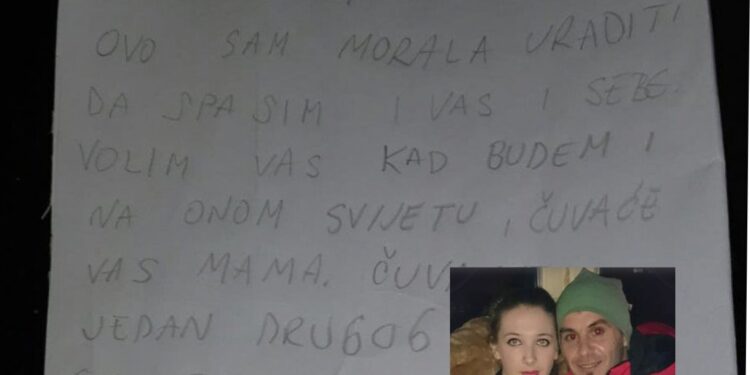 OVO SAM MORALA URADITI
DA SPASIM I VAS I SEBE.
VOLIM VAS KAD BUDEM I
NA ONOM SVIJETU, ČUVAĆE
VAS MAMA.
JEDAN DRUGOG